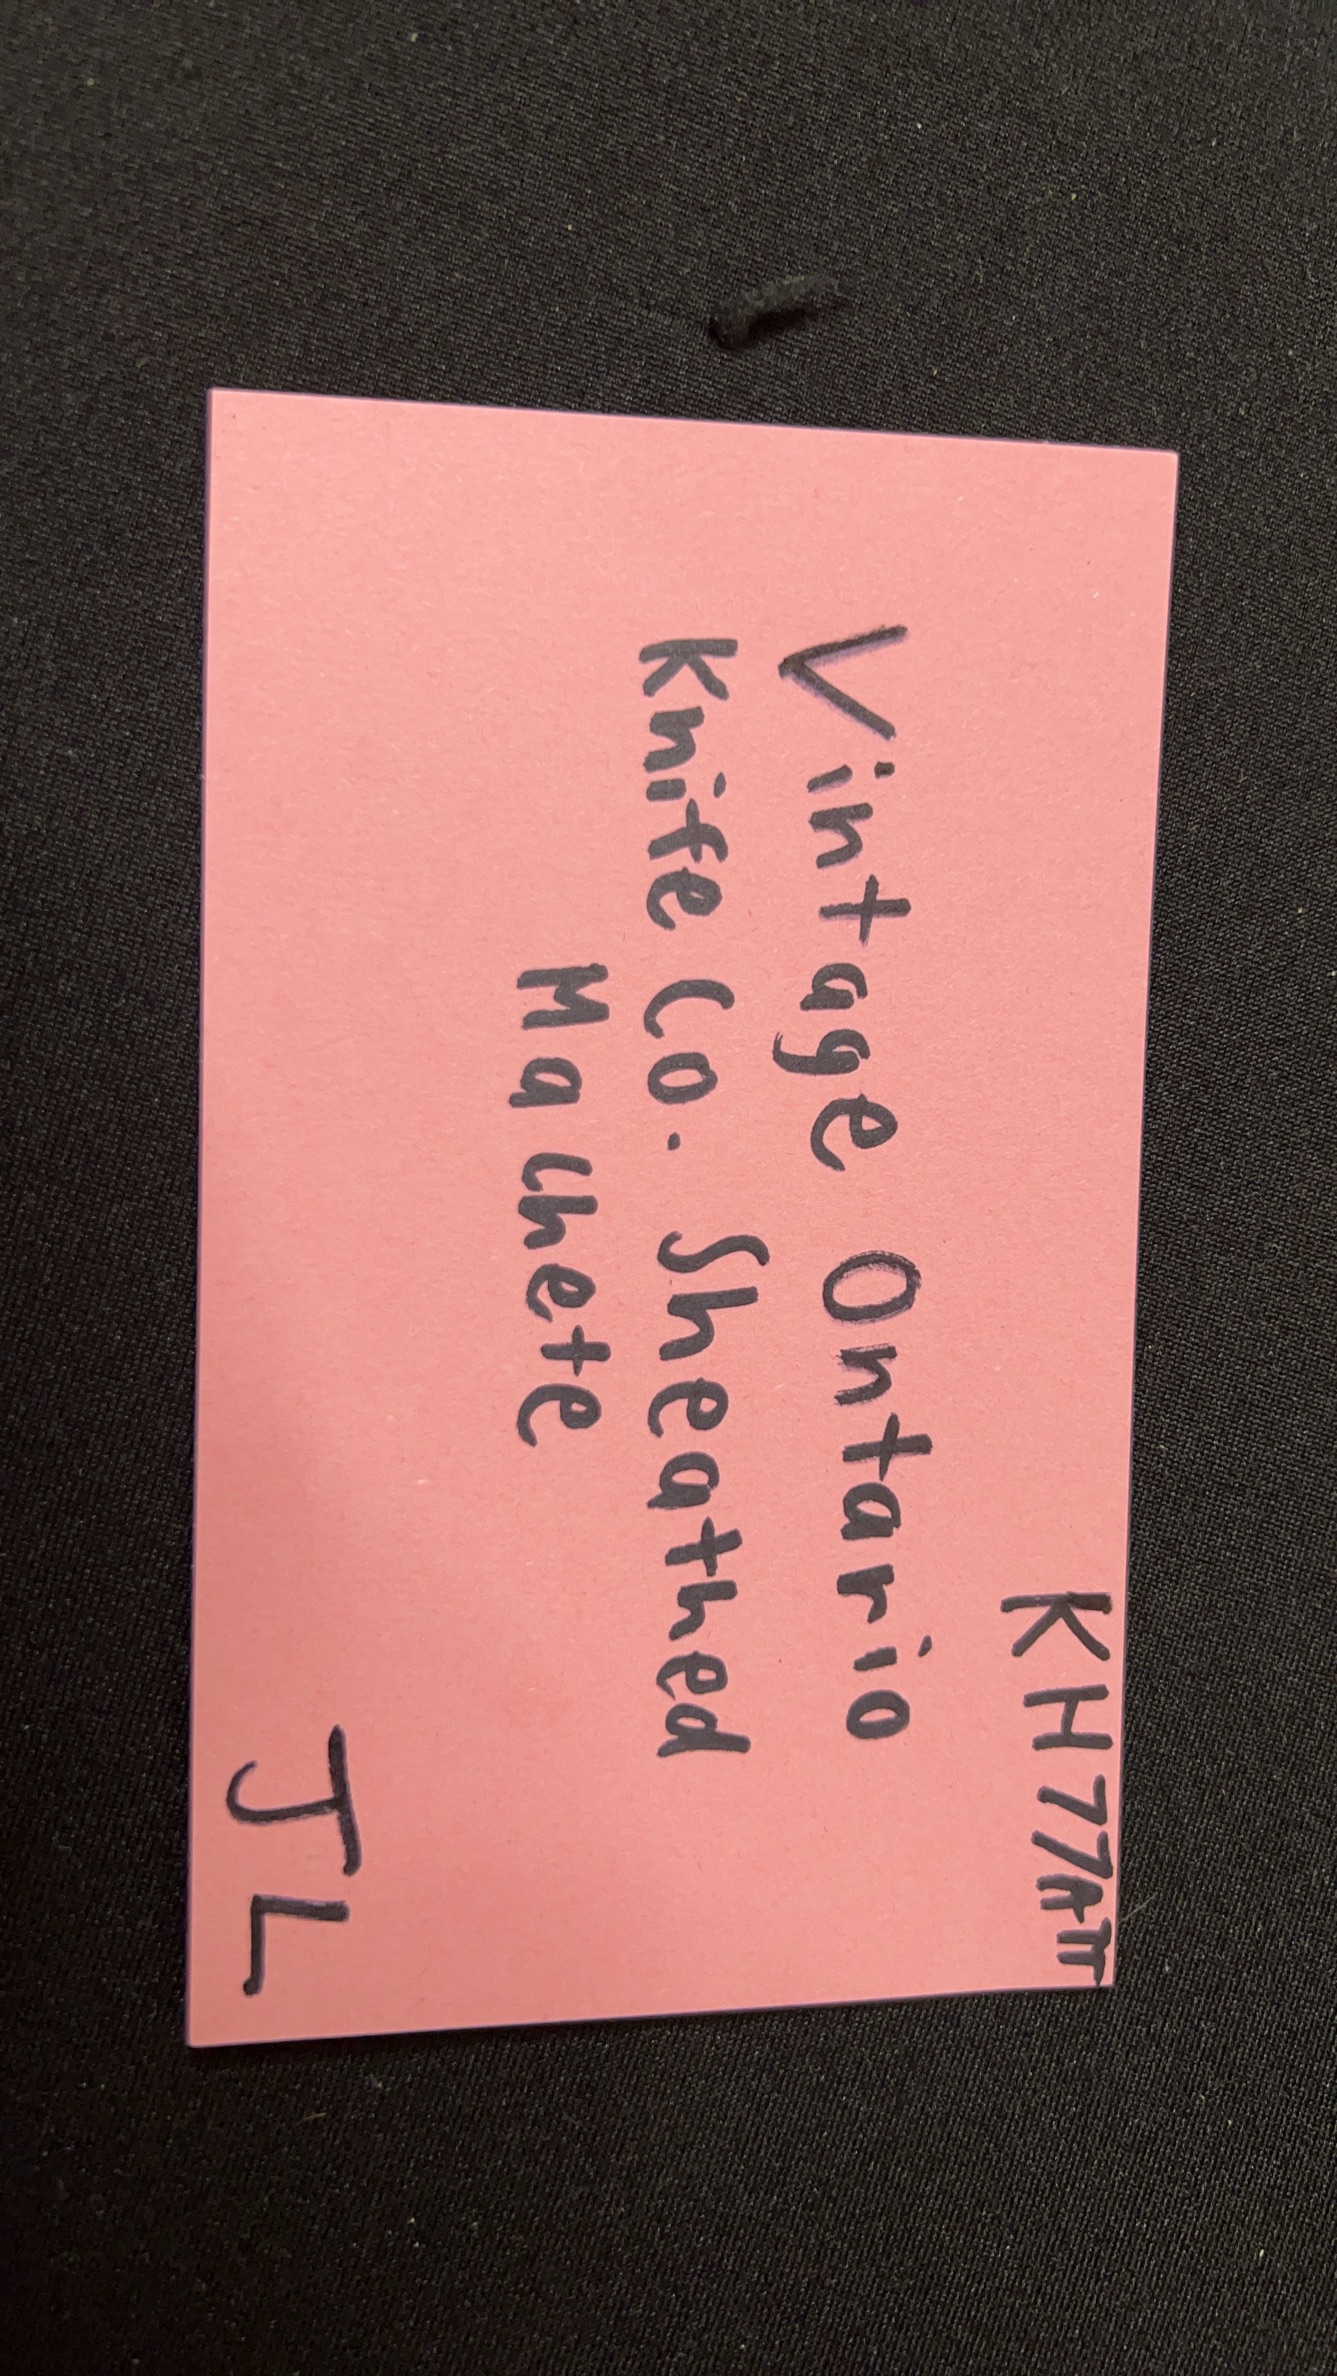 KH77ATT
Vintage Ontario
Knife Co. Sheathed
Machete
JL